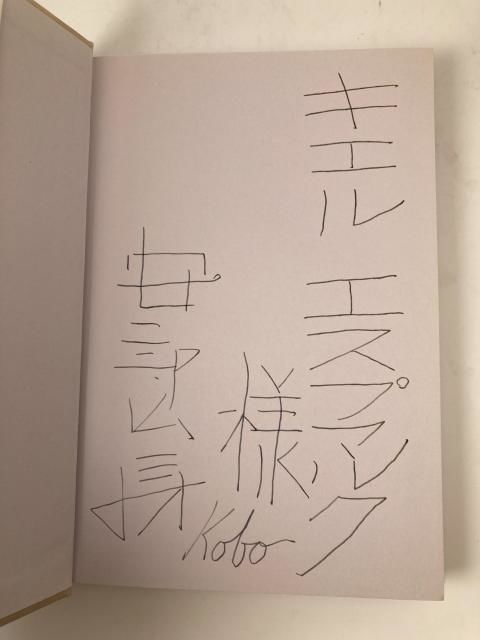 キエル エスプマルク
様
安部公房
Kobo